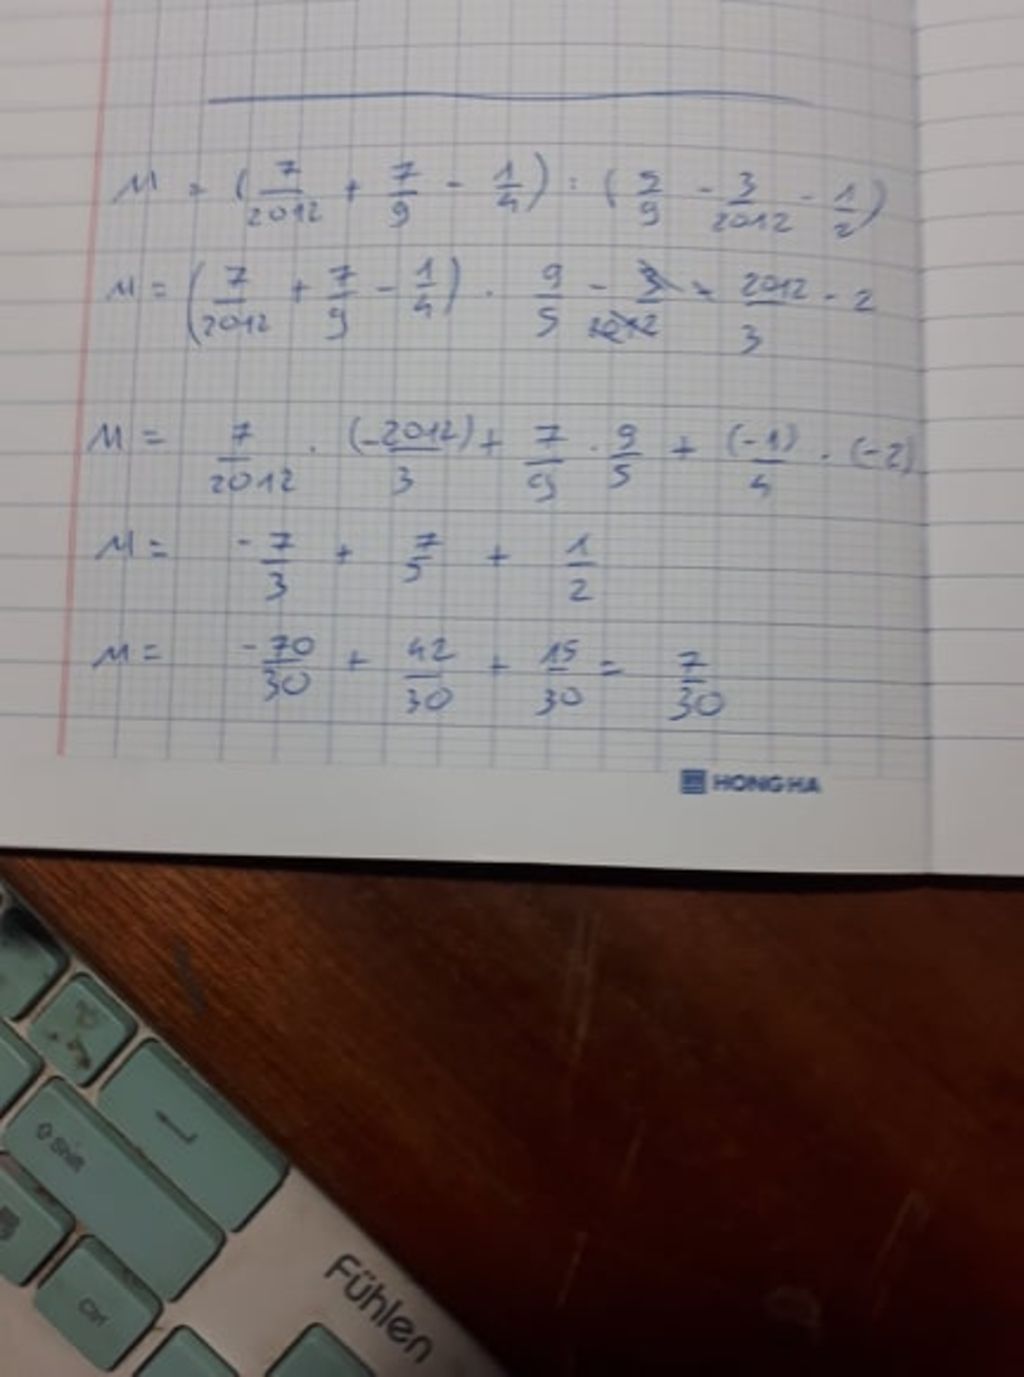 M = (7/2012 + 7/9 - 1/4) : (5/9 - 3/2012 - 1/2)
M = (7/2012 + 7/9 - 1/4) . 9/5 - 2012/3 - 2
M = 7/2012 . (-2012)/3 + 7/9 . 9/5 + (-1)/4 . (-2)
M = -7/3 + 7/5 + 1/2
M = -70/30 + 42/30 + 15/30 = 7/30
HONG HA
Shift
Ctrl
Fühlen